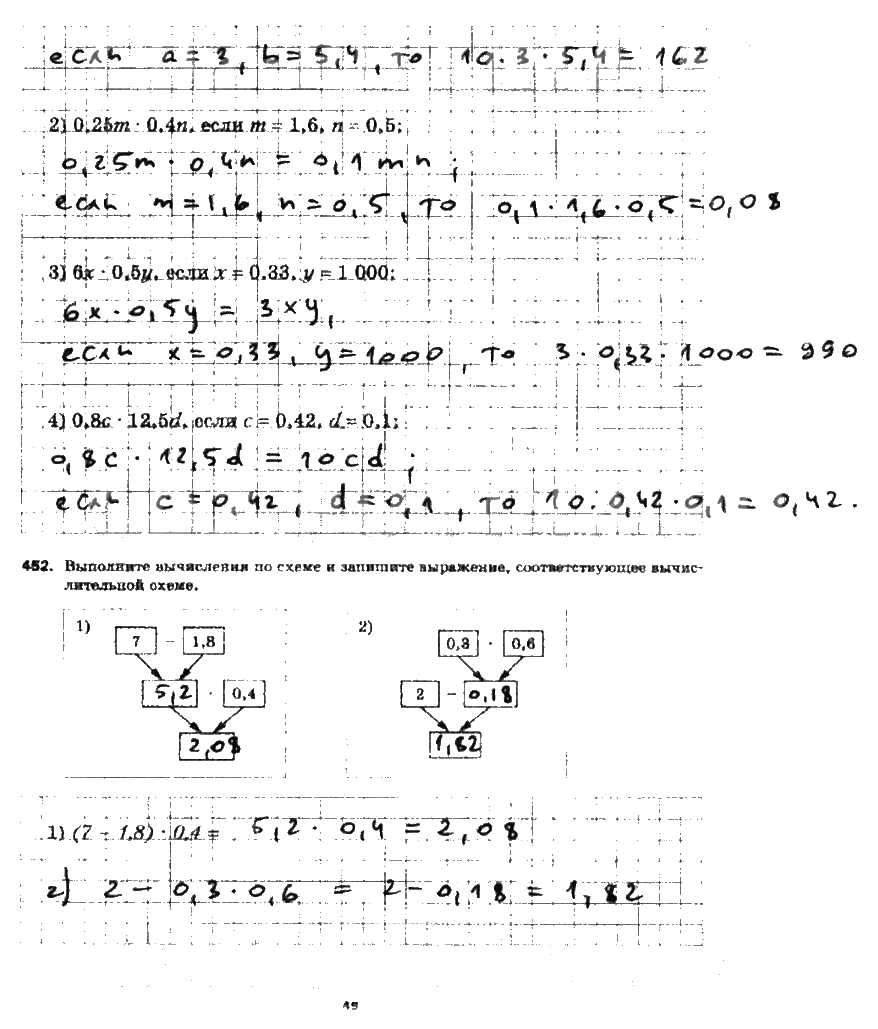 если a = 3, b = 5,4, то 10 · 3 · 5,4 = 162
2) 0,25m · 0,4n, если m = 1,6, n = 0,5;
0,25m · 0,4n = 0,1 mn;
если m = 1,6, n = 0,5, то 0,1 · 1,6 · 0,5 = 0,08
3) 6x · 0,5y, если x = 0,33, y = 1 000;
6x · 0,5y = 3xy,
если x = 0,33, y = 1000, то 3 · 0,33 · 1000 = 990
4) 0,8c · 12,5d, если c = 0,42, d = 0,1;
0,8c · 12,5d = 10cd;
если c = 0,42, d = 0,1, то 10 · 0,42 · 0,1 = 0,42.
452. Выполните вычисления по схеме и запишите выражение, соответствующее вычис-
лительной схеме.
1) 2)
7 – 1,8 0,3 · 0,6
5,2 · 0,4 2 – 0,18
2,08 1,82
1) (7 – 1,8) · 0,4 = 5,2 · 0,4 = 2,08
2) 2 – 0,3 · 0,6 = 2 – 0,18 = 1,82